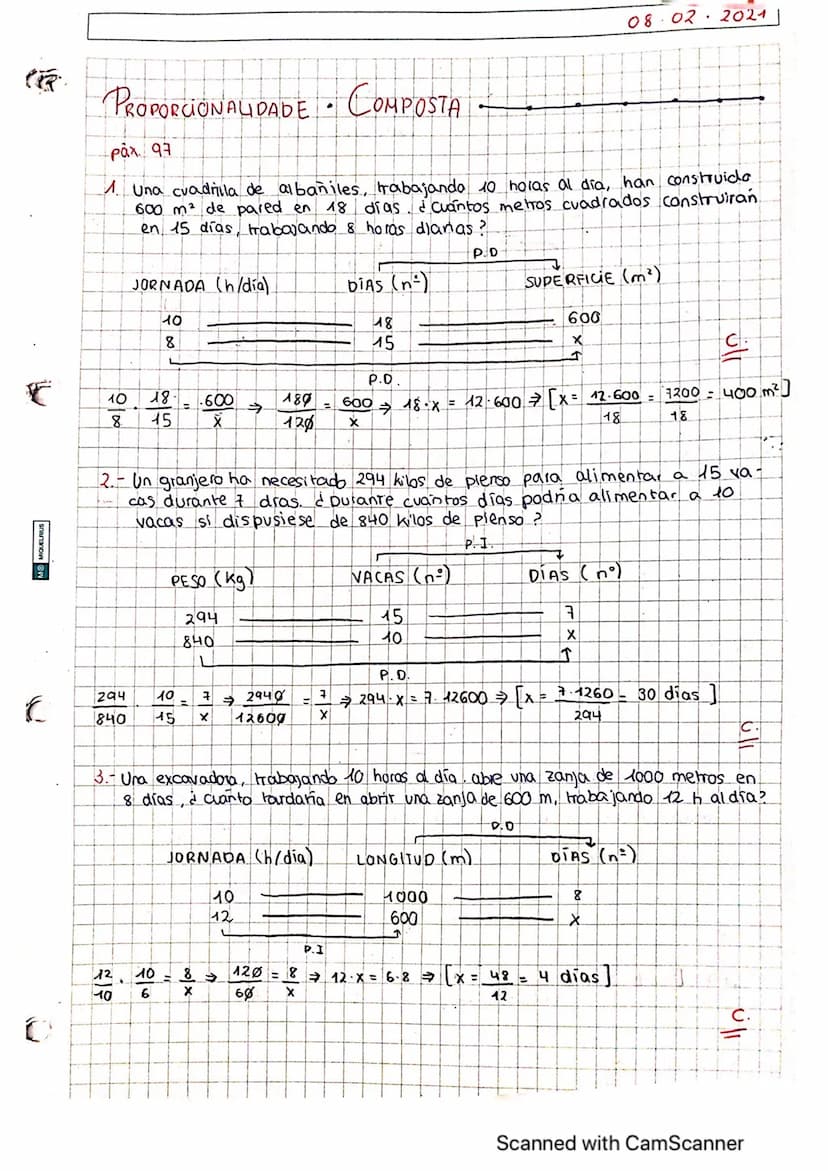 08.02.2021
PROPORCIONALIDADE · COMPOSTA
páx. 97
1. Una cuadrilla de albañiles, trabajando 10 horas al día, han construido
600 m² de pared en 18 días. ¿Cuántos metros cuadrados construirán
en 15 días, trabajando 8 horas diarias?
P.D
JORNADA (h/día) DÍAS (nº) SUPERFICIE (m²)
10 18 600
8 15 x
C.
P.D.
10/8 · 18/15 = 600/x ⇒ 180/120 = 600/x ⇒ 18·x = 12·600 ⇒ [x = 12·600/18 = 7200/18 = 400 m²]
2.- Un granjero ha necesitado 294 kilos de pienso para alimentar a 15 va-
cas durante 7 días. ¿Durante cuántos días podría alimentar a 10
vacas si dispusiese de 840 kilos de pienso?
P.I.
PESO (Kg) VACAS (nº) DÍAS (nº)
294 15 7
840 10 x
P.D.
294/840 · 10/15 = 7/x ⇒ 2940/12600 = 7/x ⇒ 294·x = 7·12600 ⇒ [x = 7·1260/294 = 30 días]
C.
3.- Una excavadora, trabajando 10 horas al día, abre una zanja de 1000 metros en
8 días, ¿cuánto tardaría en abrir una zanja de 600 m, trabajando 12 h al día?
P.D
JORNADA (h/día) LONGITUD (m) DÍAS (nº)
10 1000 8
12 600 x
P.I
12/10 · 10/6 = 8/x ⇒ 120/60 = 8/x ⇒ 12·x = 6·8 ⇒ [x = 48/12 = 4 días]
C.
MIQUELRIUS
Scanned with CamScanner